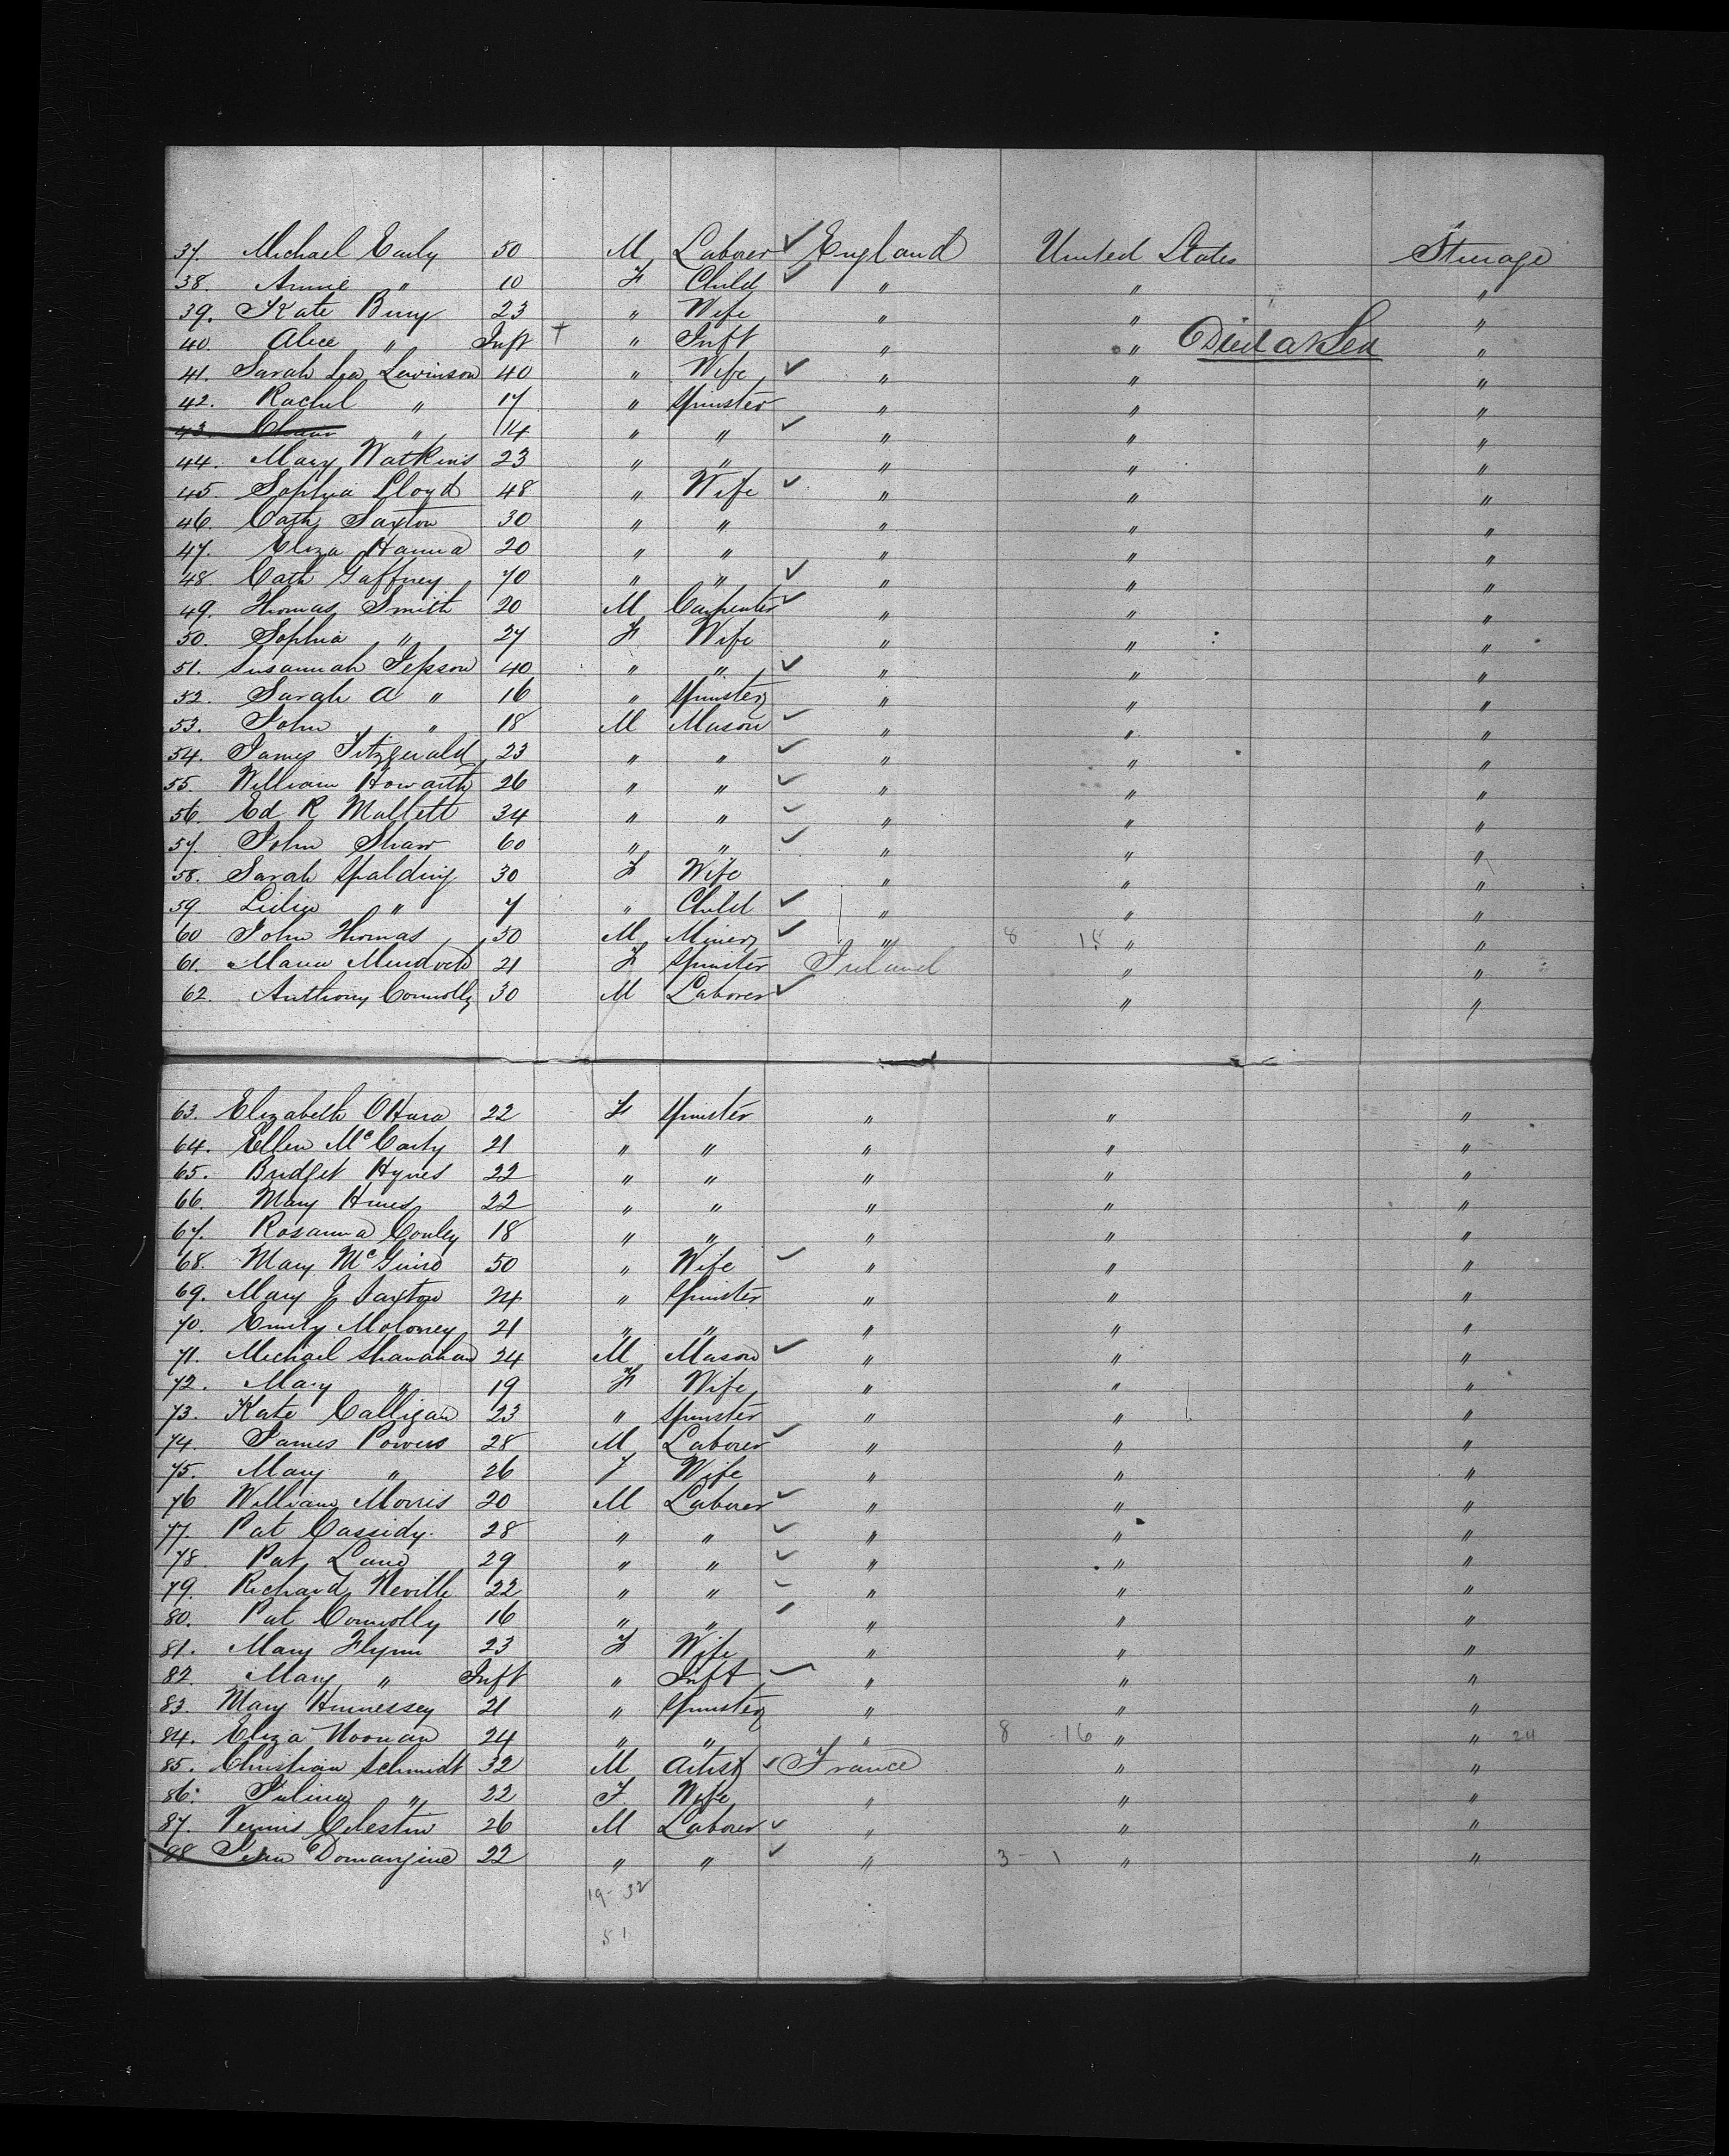 37. Michael Early 50 M Laborer ✓ England United States Steerage
38. Annie " 10 F Child ✓ " " "
39. Kate Bury 23 " Wife " " "
40. Alice " Inft + " Inft " " Died at Sea "
41. Sarah Lea Lewinson 40 " Wife ✓ " " "
42. Rachel " 17 " Spinster " " "
43. " 14 " " ✓ " " "
44. Mary Watkins 23 " " " " "
45. Sophia Lloyd 48 " Wife ✓ " " "
46. Cath Saxton 30 " " " " "
47. Eliza Hanna 20 " " " " "
48. Cath Gaffney 70 " " ✓ " " "
49. Thomas Smith 20 M Carpenter ✓ " " "
50. Sophia " 27 F Wife " " "
51. Susannah Jepson 40 " " ✓ " " "
52. Sarah A " 16 " Spinster " " "
53. John " 18 M Mason ✓ " " "
54. James Fitzgerald 23 " " ✓ " " "
55. William Howarth 26 " " ✓ " " "
56. Ed R Mallett 34 " " ✓ " " "
57. John Shaw 60 " " ✓ " " "
58. Sarah Spalding 30 F Wife " " "
59 " 7 " Child ✓ " " "
60 John Thomas 50 M Miner ✓ " 8 - 15 " "
61. Maria Murdock 21 F Spinster Ireland " "
62. Anthony Connolly 30 M Laborer ✓ " "
63. Elizabeth OHara 22 F Spinster " " "
64. Ellen McCarty 21 " " " " "
65. Bridget Hynes 22 " " " " "
66. Mary Hines 22 " " " " "
67. Rosanna Conley 18 " " " " "
68. Mary McGuire 50 " Wife ✓ " " "
69. Mary J Saxton 24 " Spinster " " "
70. Emily Moloney 21 " " " " "
71. Michael Shanahan 24 M Mason ✓ " " "
72. Mary " 19 F Wife " " "
73. Kate Calligan 23 " Spinster " " "
74. James Powers 28 M Laborer ✓ " " "
75. Mary " 26 F Wife " " "
76 William Morris 20 M Laborer ✓ " " "
77. Pat Cassidy 28 " " ✓ " " "
78 Pat Lane 29 " " ✓ " " "
79. Richard Neville 22 " " ✓ " " "
80. Pat Connolly 16 " " ✓ " " "
81. Mary Flynn 23 F Wife " " "
82. Mary " Inft " Inft ✓ " " "
83. Mary Hennessey 21 " Spinster " " "
84. Eliza Noonan 24 " " " 8 - 16 " " 24
85. Christian Schmidt 32 M Artist ✓ France " "
86. Julina " 22 F. Wife " " "
87. Celestin 26 M Laborer ✓ " " "
88 Jean Domangine 22 " " ✓ " 3 - 1 " "
19 - 32
51